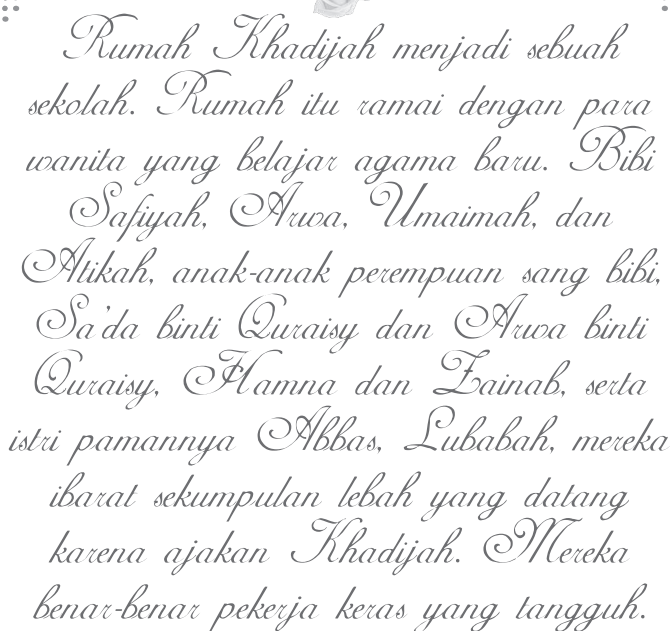 Rumah Khadijah menjadi sebuah
sekolah. Rumah itu ramai dengan para
wanita yang belajar agama baru. Bibi
Safiyah, Arwa, Umaimah, dan
Atikah, anak-anak perempuan sang bibi,
Sa'da binti Quraisy dan Arwa binti
Quraisy, Hamna dan Zainab, serta
istri pamannya Abbas, Lubabah, mereka
ibarat sekumpulan lebah yang datang
karena ajakan Khadijah. Mereka
benar-benar pekerja keras yang tangguh.